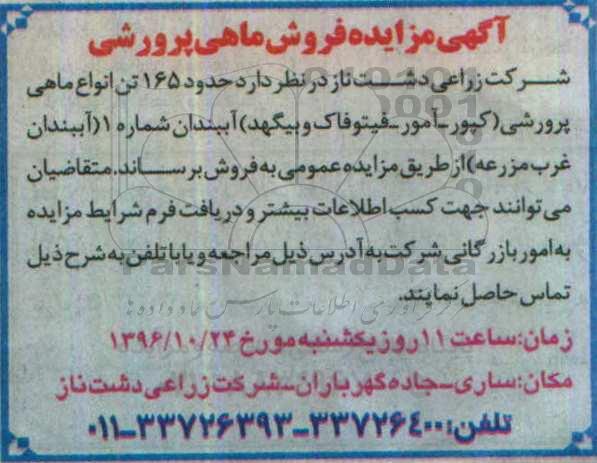 آگهی مزایده فروش ماهی پرورشی
شرکت زراعی دشت ناز در نظر دارد حدود ۱۶۵ تن انواع ماهی
پرورشی (کپور ـ آمور ـ فیتوفاک و بیگهد) آببندان شماره ۱ (آببندان
غرب مزرعه) از طریق مزایده عمومی به فروش برساند. متقاضیان
می توانند جهت کسب اطلاعات بیشتر و دریافت فرم شرایط مزایده
به امور بازرگانی شرکت به آدرس ذیل مراجعه و یا با تلفن به شرح ذیل
ParsNamadData
تماس حاصل نمایند.
زمان: ساعت ۱۱ روز یکشنبه مورخ ۱۳۹۶/۱۰/۲۴
مکان: ساری ـ جاده گهرباران ـ شرکت زراعی دشت ناز
تلفن: ۳۳۷۲۶۴۰۰ ـ ۳۳۷۲۶۳۹۳ ـ ۰۱۱